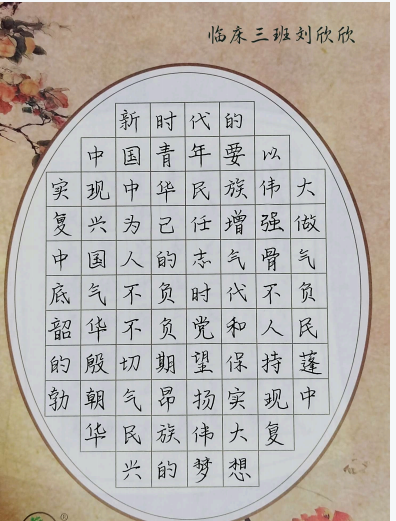 临床三班刘欣欣
新时代的
中国青年要以
实现中华民族伟大
复兴为己任增强做
中国人的志气骨气
底气不负时代不负
韶华不负党和人民
的殷切期望保持蓬
勃朝气昂扬实现中
华民族伟大复
兴的梦想